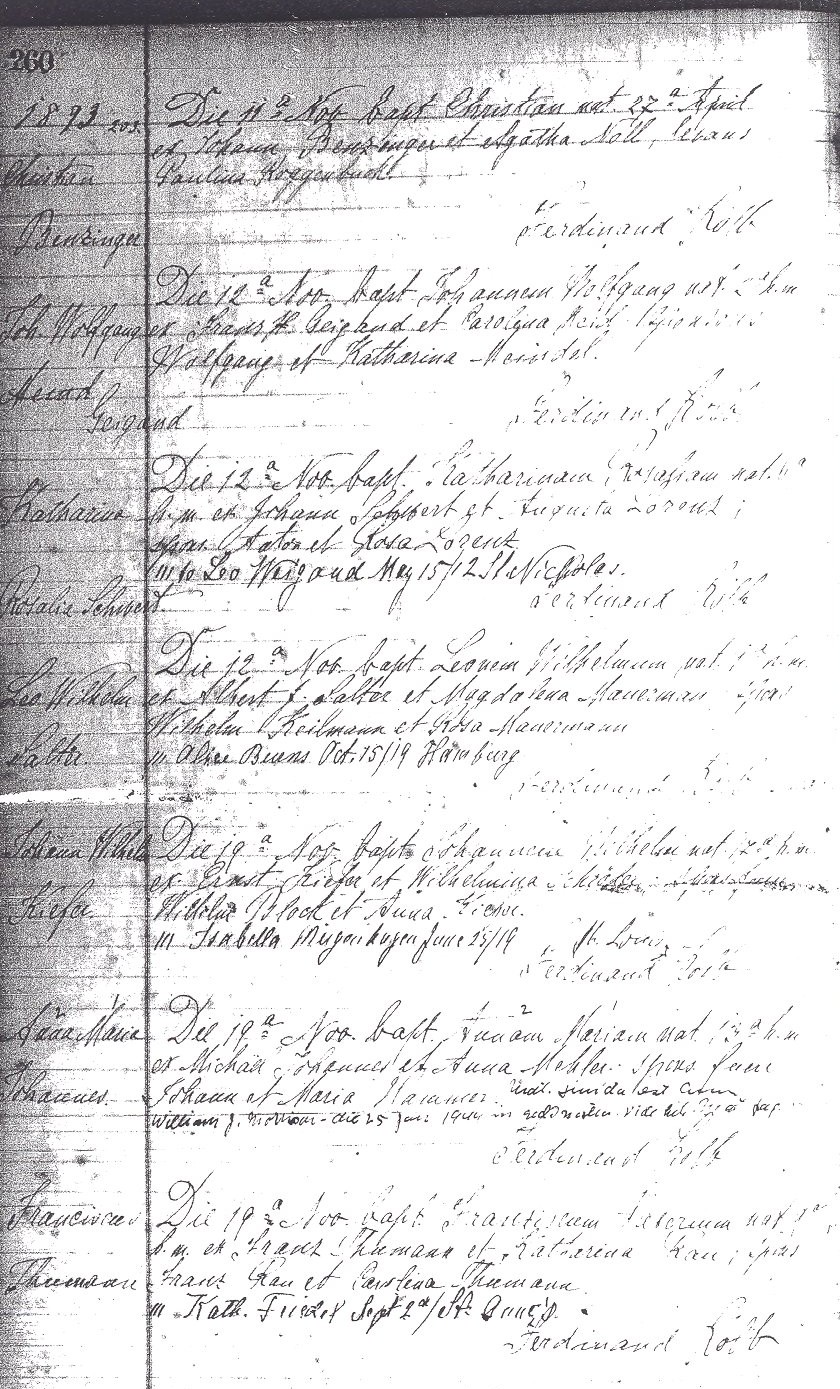 260
1893 203. Die 11ª Nov. bapt Christian nat. 27ª April
ex Johann Benzinger et Agatha Noll, levans
Christian Paulina Roggenbuck.
Benzinger Ferdinand Kolb
Die 12ª Nov. bapt Johannem Wolfgang nat. 2ª h.m
Joh Wolfgang ex Franz H. Geigand et Carolina
Wolfgang et Katharina Meindel.
Geigand Ferdinand Kolb
Die 12ª Nov. bapt. Katharinam Rosaliam nat.
Katharina h.m. ex Johann Schubert et Augusta Lorenz;
spons Anton et Rosa Lorenz
m to Leo Weigand May 15/12 St Nicholas.
Rosalie Schubert Ferdinand Kolb
Die 12ª Nov. bapt. Leonem Wilhelmum nat. 1ª h.m.
Leo Wilhelm ex Albert J. Salter et Magdalena Mauerman; spons
Wilhelm Keilmann et Rosa Mauermann
Salter. m Alice Burns Oct. 15/19 Hamburg
Ferdinand Kolb
Johann Wilhelm Die 19ª Nov. bapt Johannem Wilhelm nat. 12ª h.m.
ex Ernst Kiefer et Wilhelmina
Kiefer. Wilhelm Block et Anna
m Isabella June 25/19 St. Louis
Ferdinand Kolb
Anna Maria Die 19ª Nov. bapt. Annam Mariam nat. 13ª h.m
ex Michael Johannes et Anna Mehler. spons fuere
Johannes. Johann et Maria Hammer. cum
William J. die 25 1944 in vide
Ferdinand Kolb
Franciscus Die 19ª Nov. bapt. Franziscum nat.
h.m. ex Franz Thumann et Katharina Rau; spons
Thumann Franz Rau et Carolina Thumann
m Kath. Sept 2ª/ St. Ann's
Ferdinand Kolb